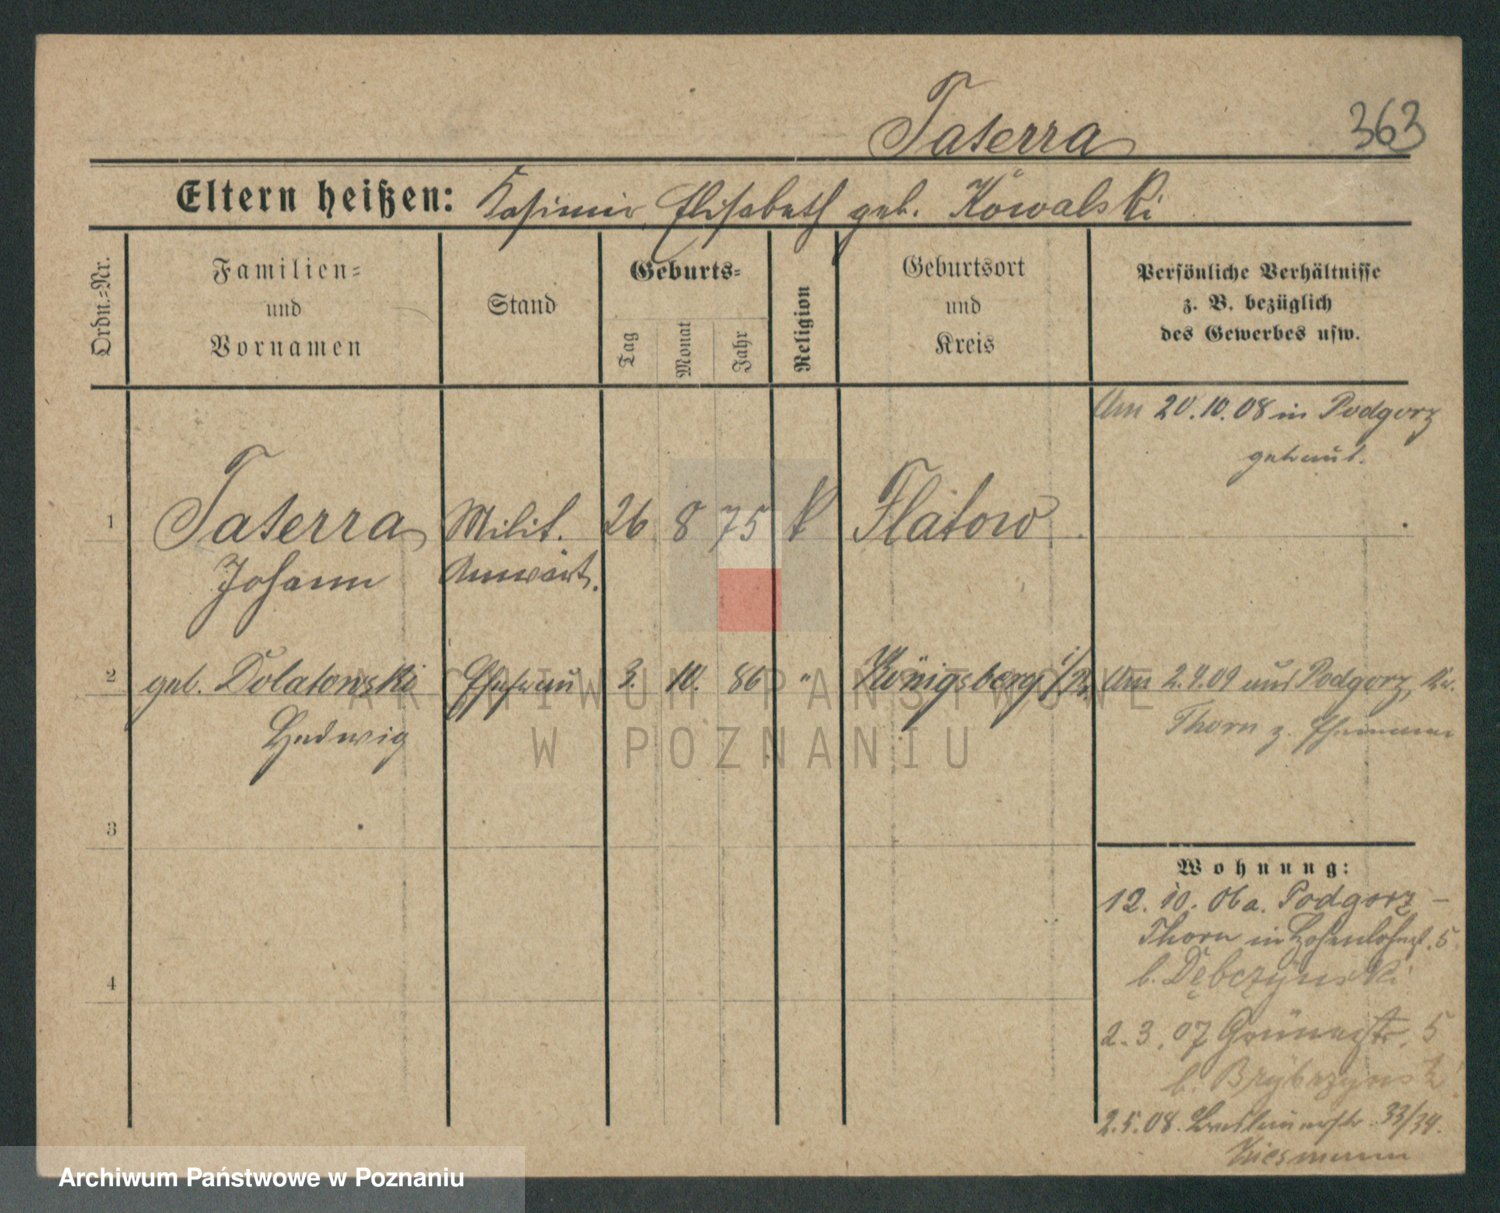 Taterra
363
Eltern heißen: Kasimir, Elisabeth geb. Kowalski
Ordn.=Nr.
Familien=
und
Vornamen
Stand
Geburts=
Tag
Monat
Jahr
Religion
Geburtsort
und
Kreis
Persönliche Verhältnisse
z. B. bezüglich
des Gewerbes usw.
Am 20.10.08 in Podgorz
getraut.
1
Taterra
Johann
Milit.
Anwärt.
26 8 75 k
Flatow
2
geb. Dolatowski
Hedwig
Ehefrau
3. 10. 86 "
Königsberg i/
Am 2.9.09 aus Podgorz, Kr.
Thorn z. Ehemann
3
4
Wohnung:
12.10.06 a. Podgorz -
Thorn in Hohenlohestr. 5
b. Dębczynski
2.3.07 Grünestr. 5
b.
2.5.08. 33/34.
ARCHIWUM PAŃSTWOWE
W POZNANIU
Archiwum Państwowe w Poznaniu